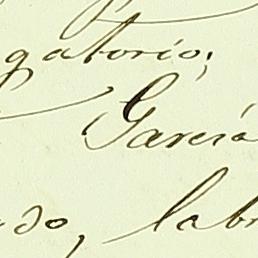 gatorio;
García
do, lab